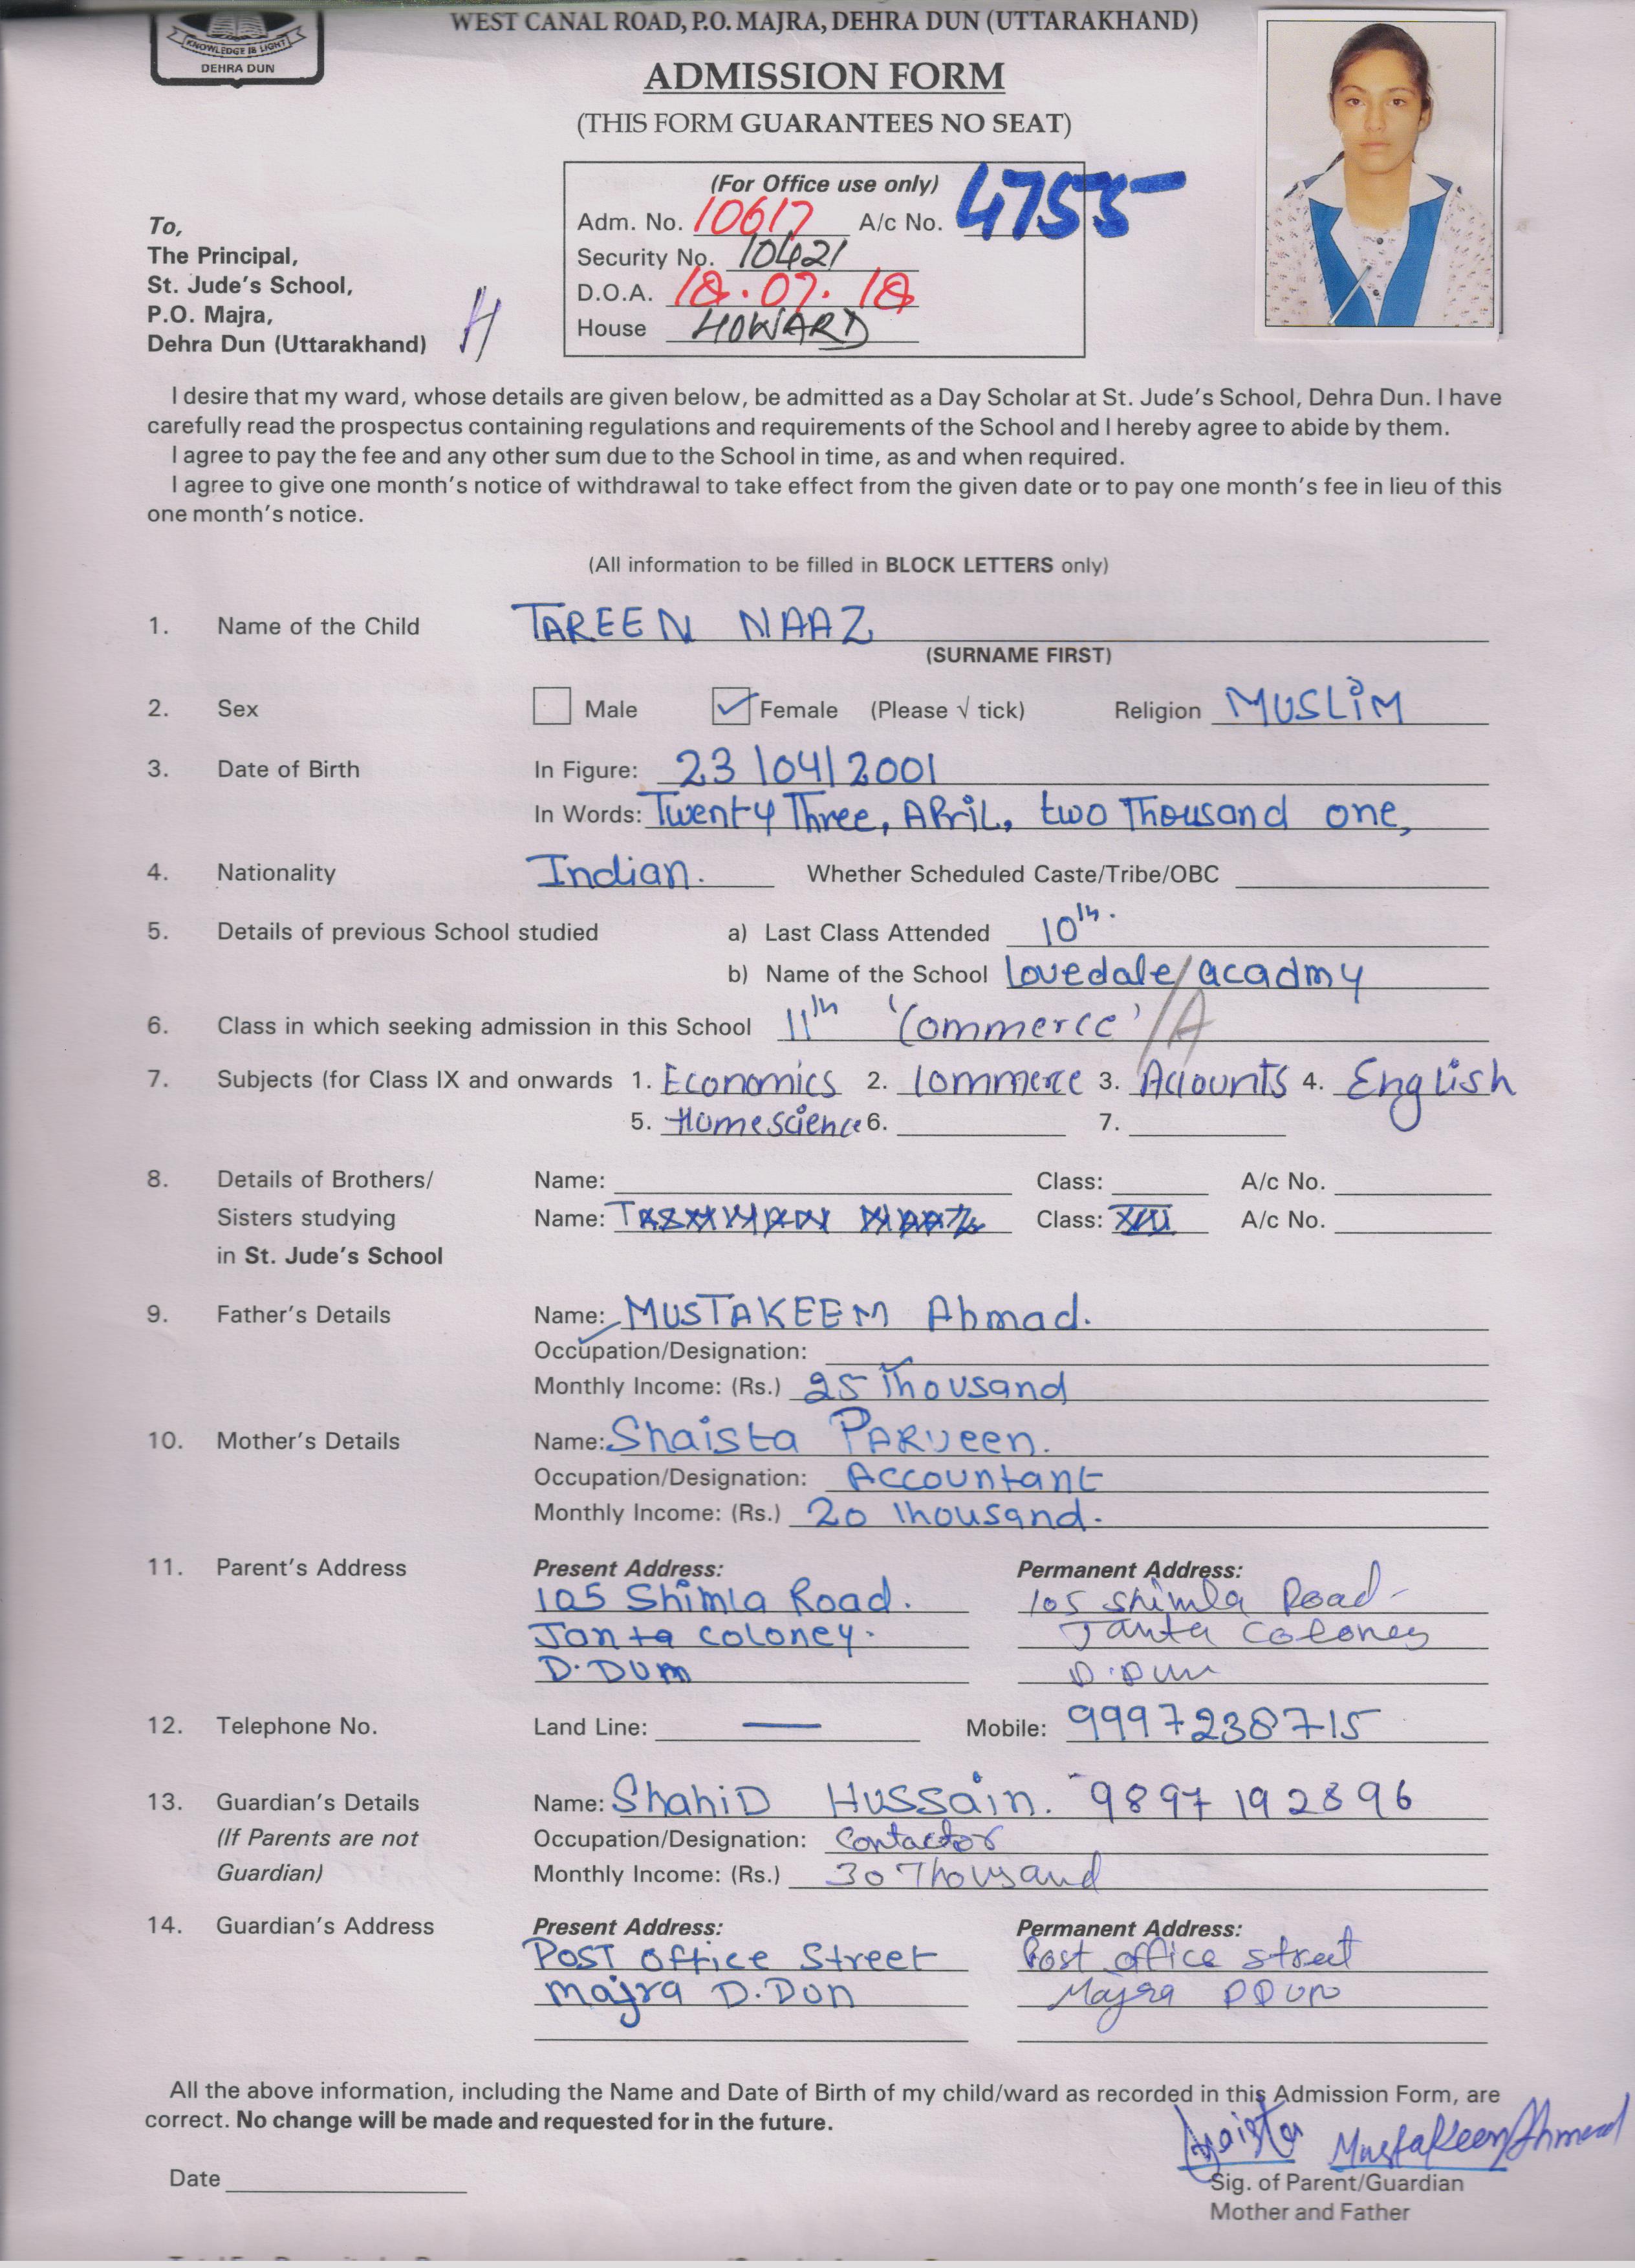 WEST CANAL ROAD, P.O. MAJRA, DEHRA DUN (UTTARAKHAND)
KNOWLEDGE IS LIGHT
DEHRA DUN
ADMISSION FORM
(THIS FORM GUARANTEES NO SEAT)
(For Office use only)
Adm. No. 10617 A/c No. 4755
Security No. 10421
D.O.A. 18.07.18
House HOWARD
To,
The Principal,
St. Jude's School,
P.O. Majra,
Dehra Dun (Uttarakhand) H
I desire that my ward, whose details are given below, be admitted as a Day Scholar at St. Jude's School, Dehra Dun. I have
carefully read the prospectus containing regulations and requirements of the School and I hereby agree to abide by them.
I agree to pay the fee and any other sum due to the School in time, as and when required.
I agree to give one month's notice of withdrawal to take effect from the given date or to pay one month's fee in lieu of this
one month's notice.
(All information to be filled in BLOCK LETTERS only)
1. Name of the Child TAREEN NAAZ
(SURNAME FIRST)
2. Sex Male Female (Please √ tick) Religion MUSLIM
3. Date of Birth In Figure: 23/04/2001
In Words: Twenty Three, APriL, two Thousand one,
4. Nationality Indian. Whether Scheduled Caste/Tribe/OBC
5. Details of previous School studied a) Last Class Attended 10th.
b) Name of the School Lovedale acadmy
6. Class in which seeking admission in this School 11th 'Commerce' /A
7. Subjects (for Class IX and onwards 1. Economics 2. Commerce 3. Accounts 4. English
5. Homescience 6. 7.
8. Details of Brothers/ Name: Class: A/c No.
Sisters studying Name: Class: A/c No.
in St. Jude's School
9. Father's Details Name: MUSTAKEEM Ahmad.
Occupation/Designation:
Monthly Income: (Rs.) 25 Thousand
10. Mother's Details Name: Shaista PARveen.
Occupation/Designation: Accountant
Monthly Income: (Rs.) 20 Thousand.
11. Parent's Address Present Address: Permanent Address:
105 Shimla Road. 105 Shimla Road
Janta coloney. Janta Coloney
D.DUM D.DUN
12. Telephone No. Land Line: — Mobile: 9997238715
13. Guardian's Details Name: ShahiD HUSSain. 9897192896
(If Parents are not Occupation/Designation: Contactor
Guardian) Monthly Income: (Rs.) 30 Thousand
14. Guardian's Address Present Address: Permanent Address:
POST Office Street Post office street
majra D.Don Majra DDUN
All the above information, including the Name and Date of Birth of my child/ward as recorded in this Admission Form, are
correct. No change will be made and requested for in the future.
Shaista Mustakeem Ahmad
Date Sig. of Parent/Guardian
Mother and Father